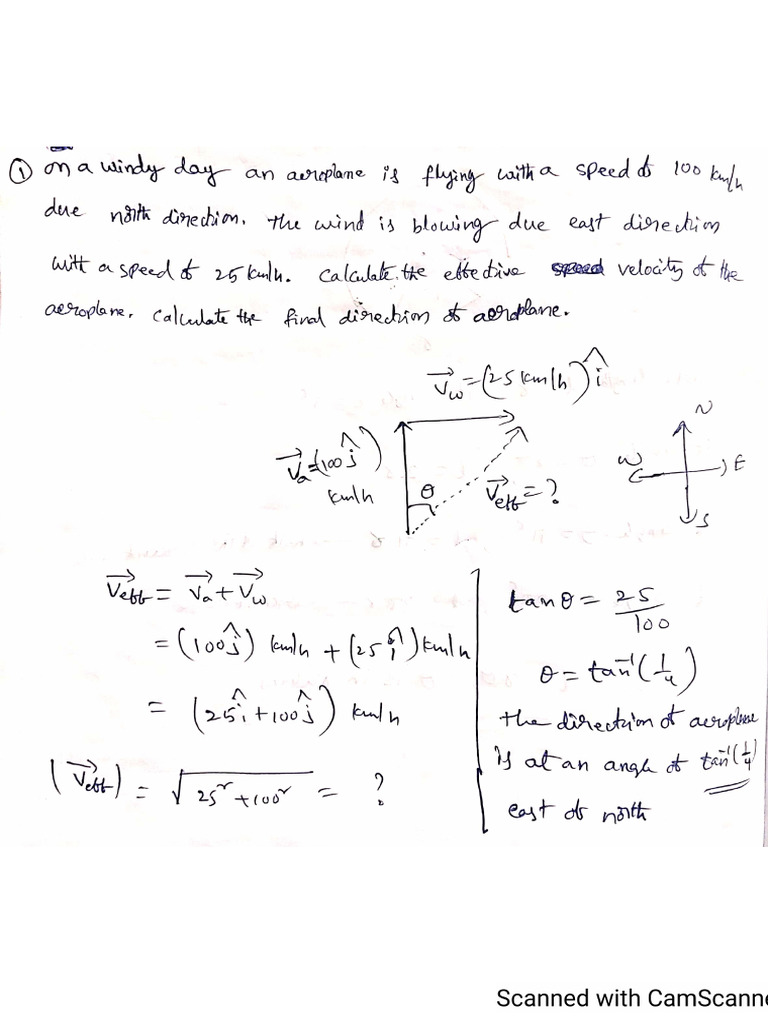 ① On a windy day an aeroplane is flying with a speed of 100 km/h
due north direction. The wind is blowing due east direction
with a speed of 25 km/h. Calculate the effective speed velocity of the
aeroplane. Calculate the final direction of aeroplane.
V⃗w = (25 km/h) î
V⃗a = (100 ĵ)
km/h
θ
V⃗eff = ?
N
W
E
S
V⃗eff = V⃗a + V⃗w
= (100 ĵ) km/h + (25 î) km/h
= (25 î + 100 ĵ) km/h
|V⃗eff| = √(25² + 100²) = ?
tan θ = 25/100
θ = tan⁻¹(1/4)
the direction of aeroplane
is at an angle of tan⁻¹(1/4)
east of north
Scanned with CamScanne